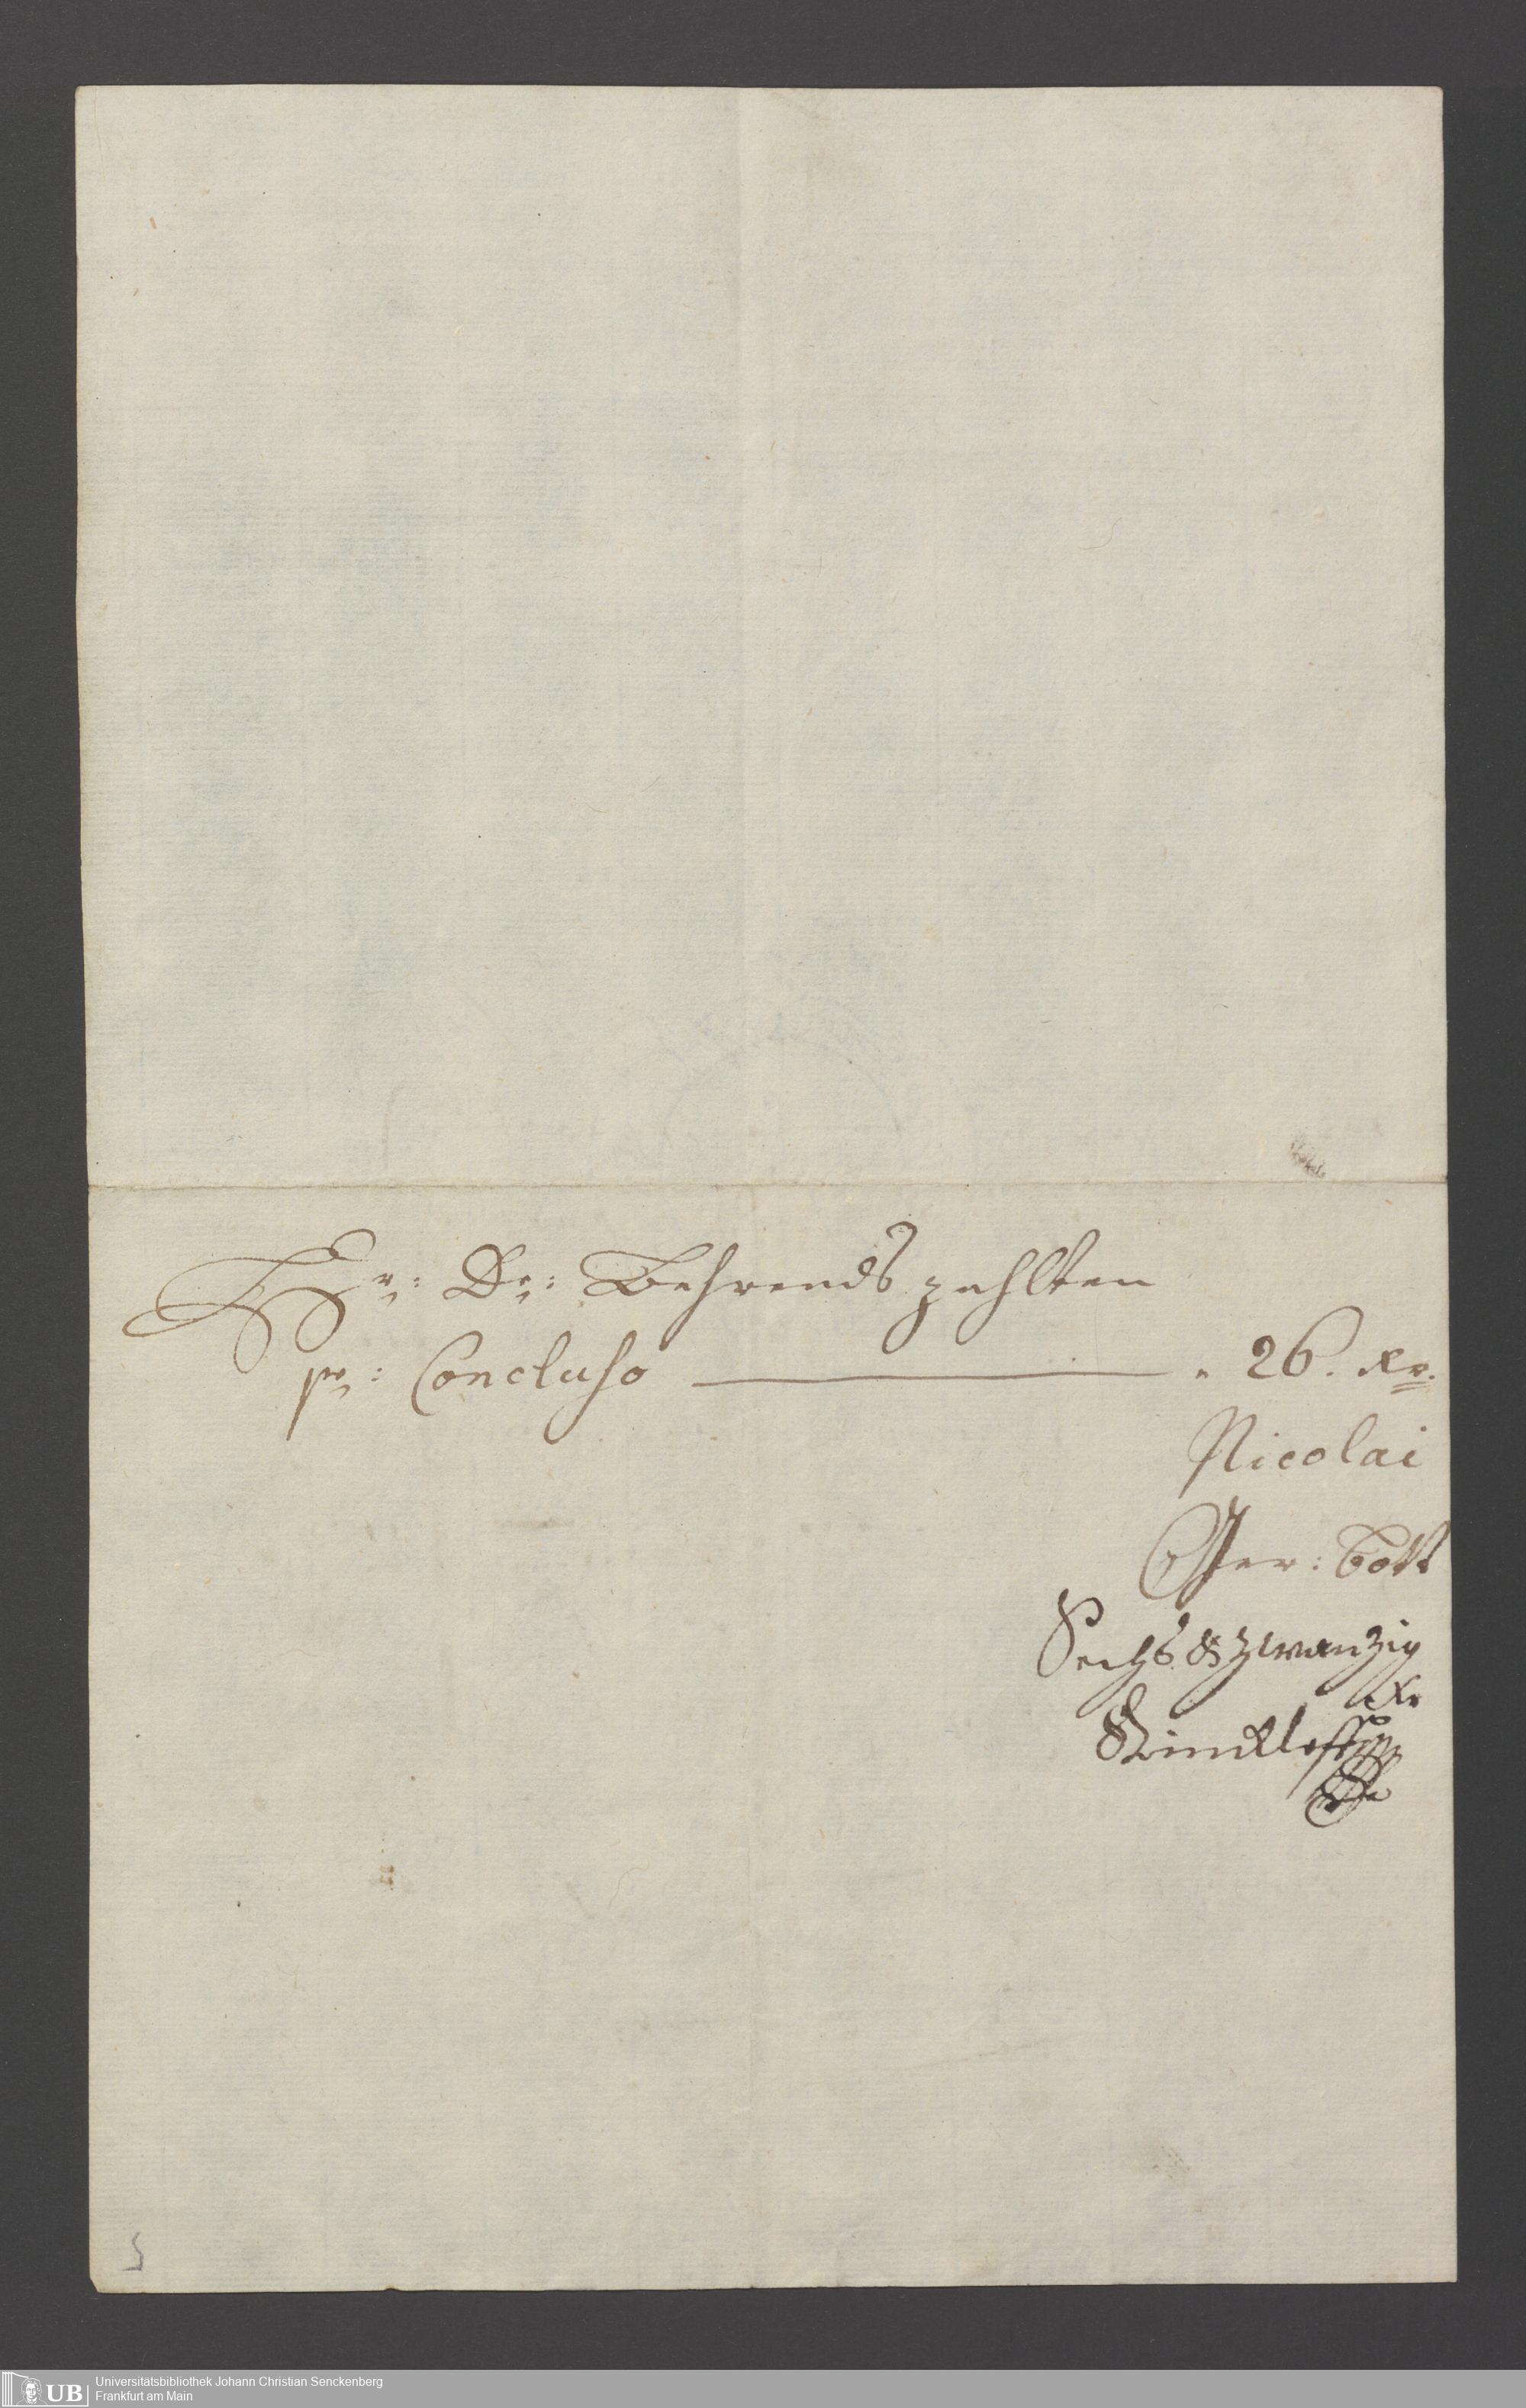 Hr: Dr: Behrends zahlten
pr: Concluso — " 26. Xr.
Nicolai
Sechs & zwanzig
Xr
5
UB Universitätsbibliothek Johann Christian Senckenberg
Frankfurt am Main